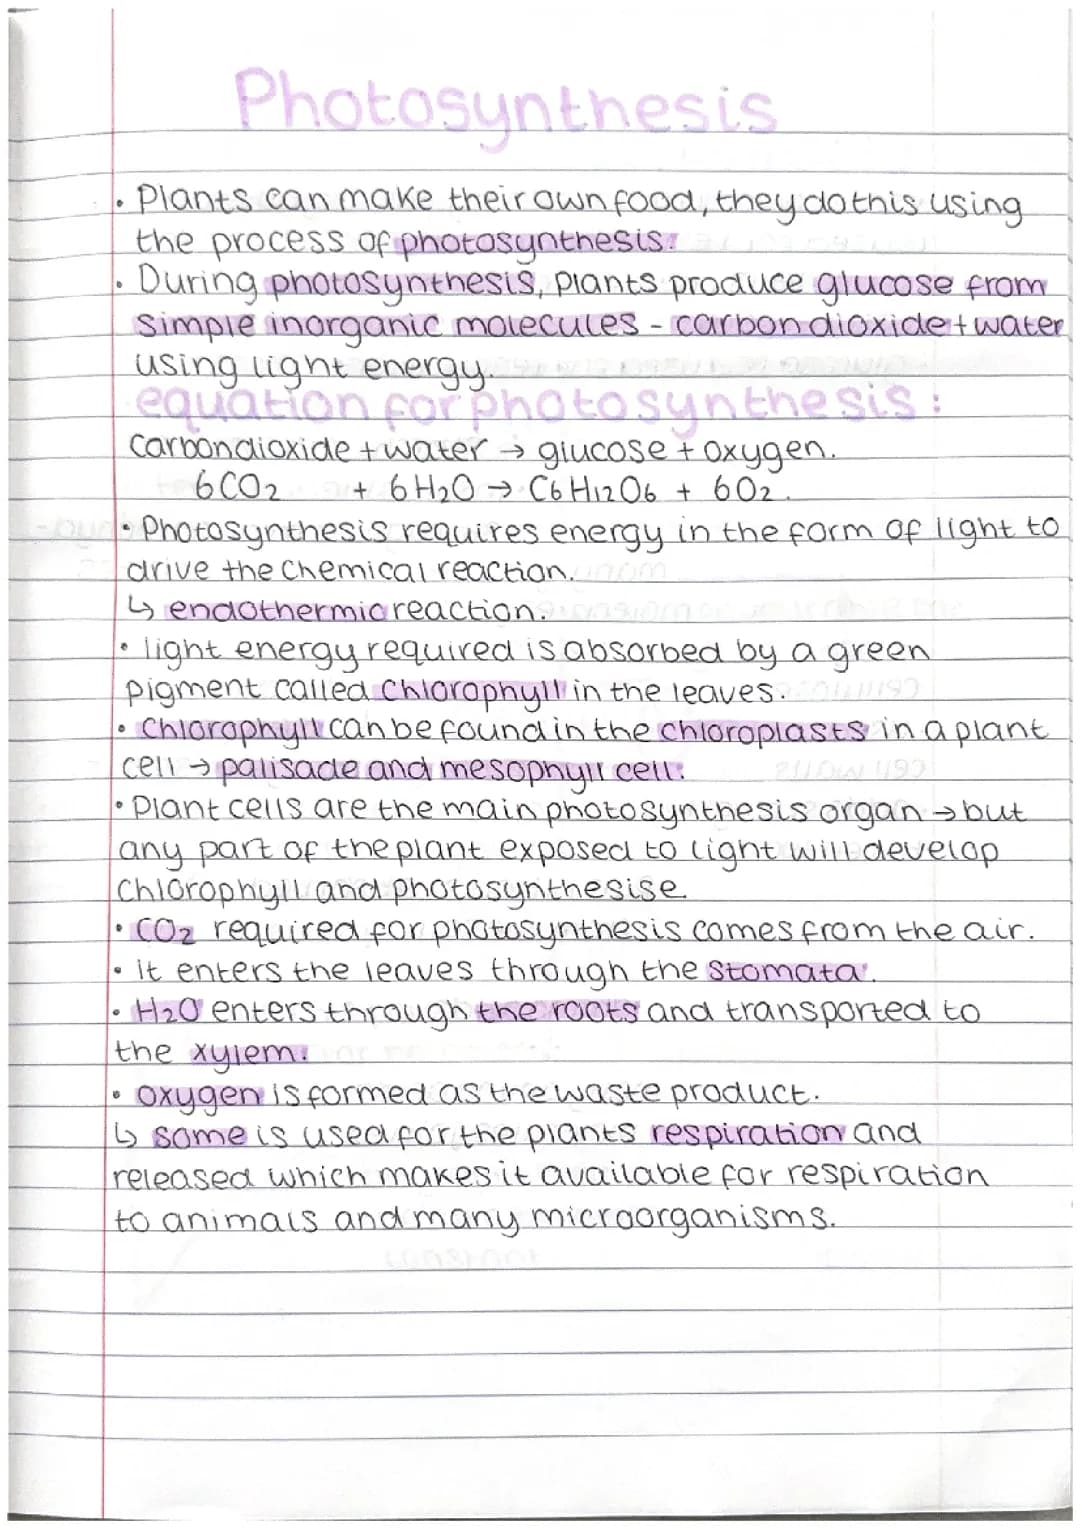 Photosynthesis
• Plants can make their own food, they do this using
the process of photosynthesis.
• During photosynthesis, plants produce glucose from
simple inorganic molecules - carbon dioxide + water
using light energy.
equation for photosynthesis :
Carbon dioxide + water → glucose + oxygen.
6CO₂ + 6H₂O → C₆H₁₂O₆ + 6O₂.
• Photosynthesis requires energy in the form of light to
drive the chemical reaction.
↳ endothermic reaction.
• light energy required is absorbed by a green
pigment called chlorophyll in the leaves.
• Chlorophyll can be found in the chloroplasts in a plant
cell → palisade and mesophyll cell.
• Plant cells are the main photosynthesis organ → but
any part of the plant exposed to light will develop
chlorophyll and photosynthesise.
• CO₂ required for photosynthesis comes from the air.
• it enters the leaves through the stomata.
• H₂O enters through the roots and transported to
the xylem.
• oxygen is formed as the waste product.
↳ some is used for the plants respiration and
released which makes it available for respiration
to animals and many microorganisms.